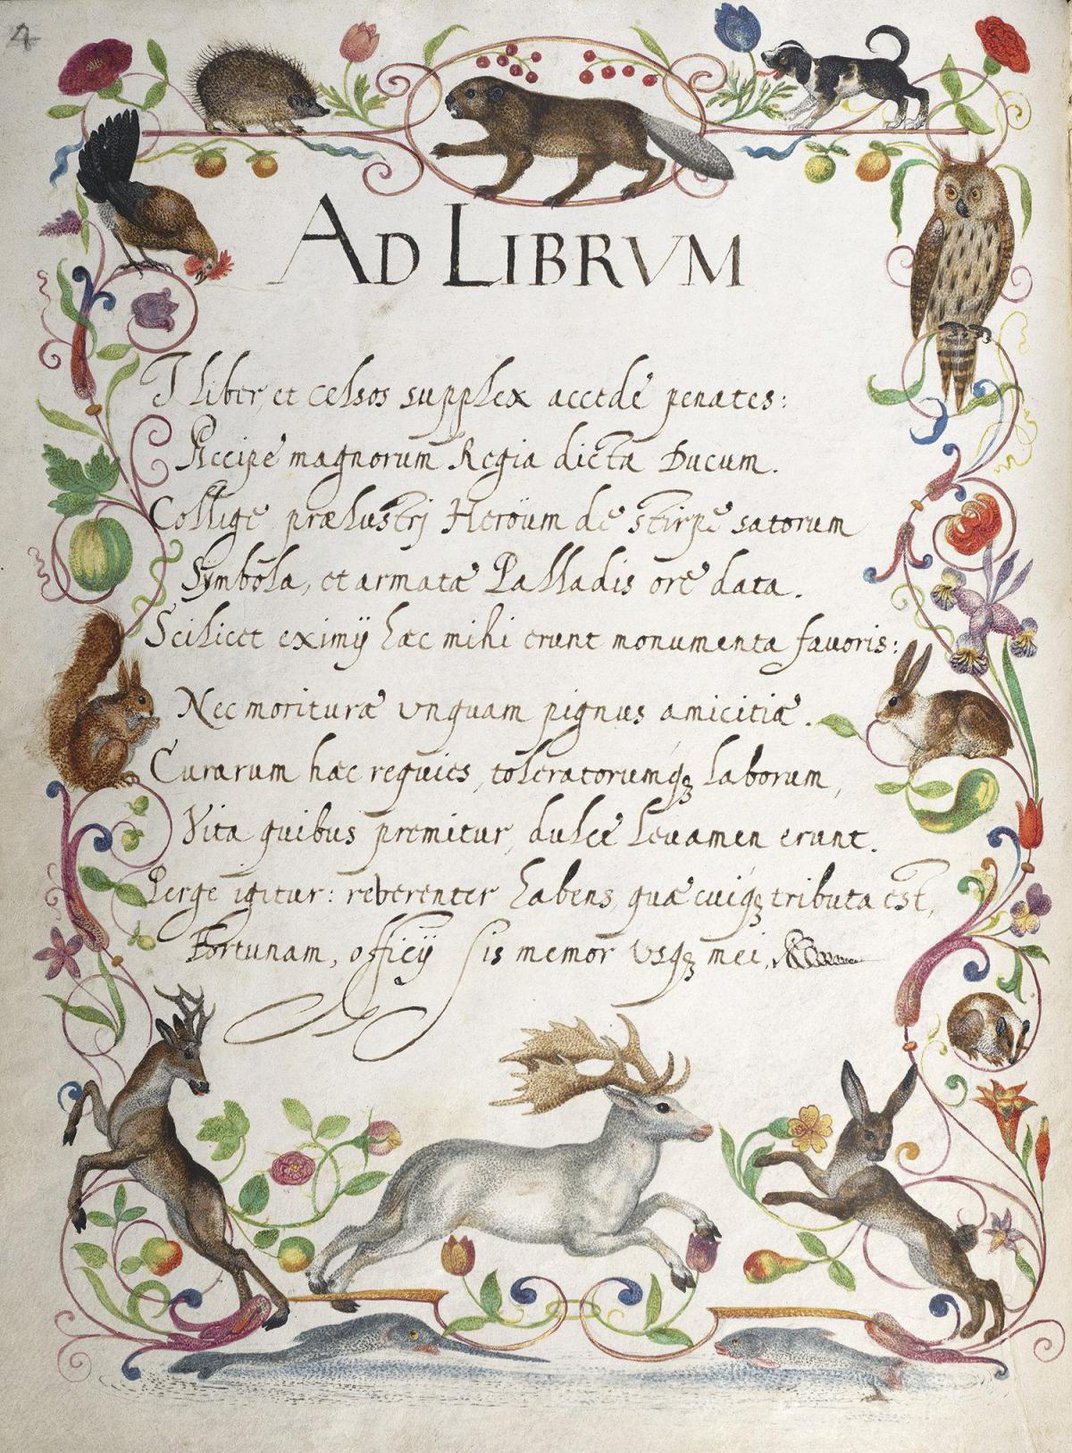 4
AD LIBRVM
I liber, et celsos supplex accede penates:
Accipe magnorum Regia dicta Ducum.
Collige prælustrj Heroüm de stirpe satorum
Symbola, et armatæ Palladis ore data.
Scilicet eximij hæc mihi erunt monumenta fauoris:
Nec morituræ vnquam pignus amicitiæ.
Curarum hæc requies, toleratorumq́ꝫ laborum,
Vita quibus premitur, dulce leuamen erunt.
Perge igitur: reverenter habens, quæ cuiq́ꝫ tributa est,
Fortunam, officij sis memor vsqꝫ mei,